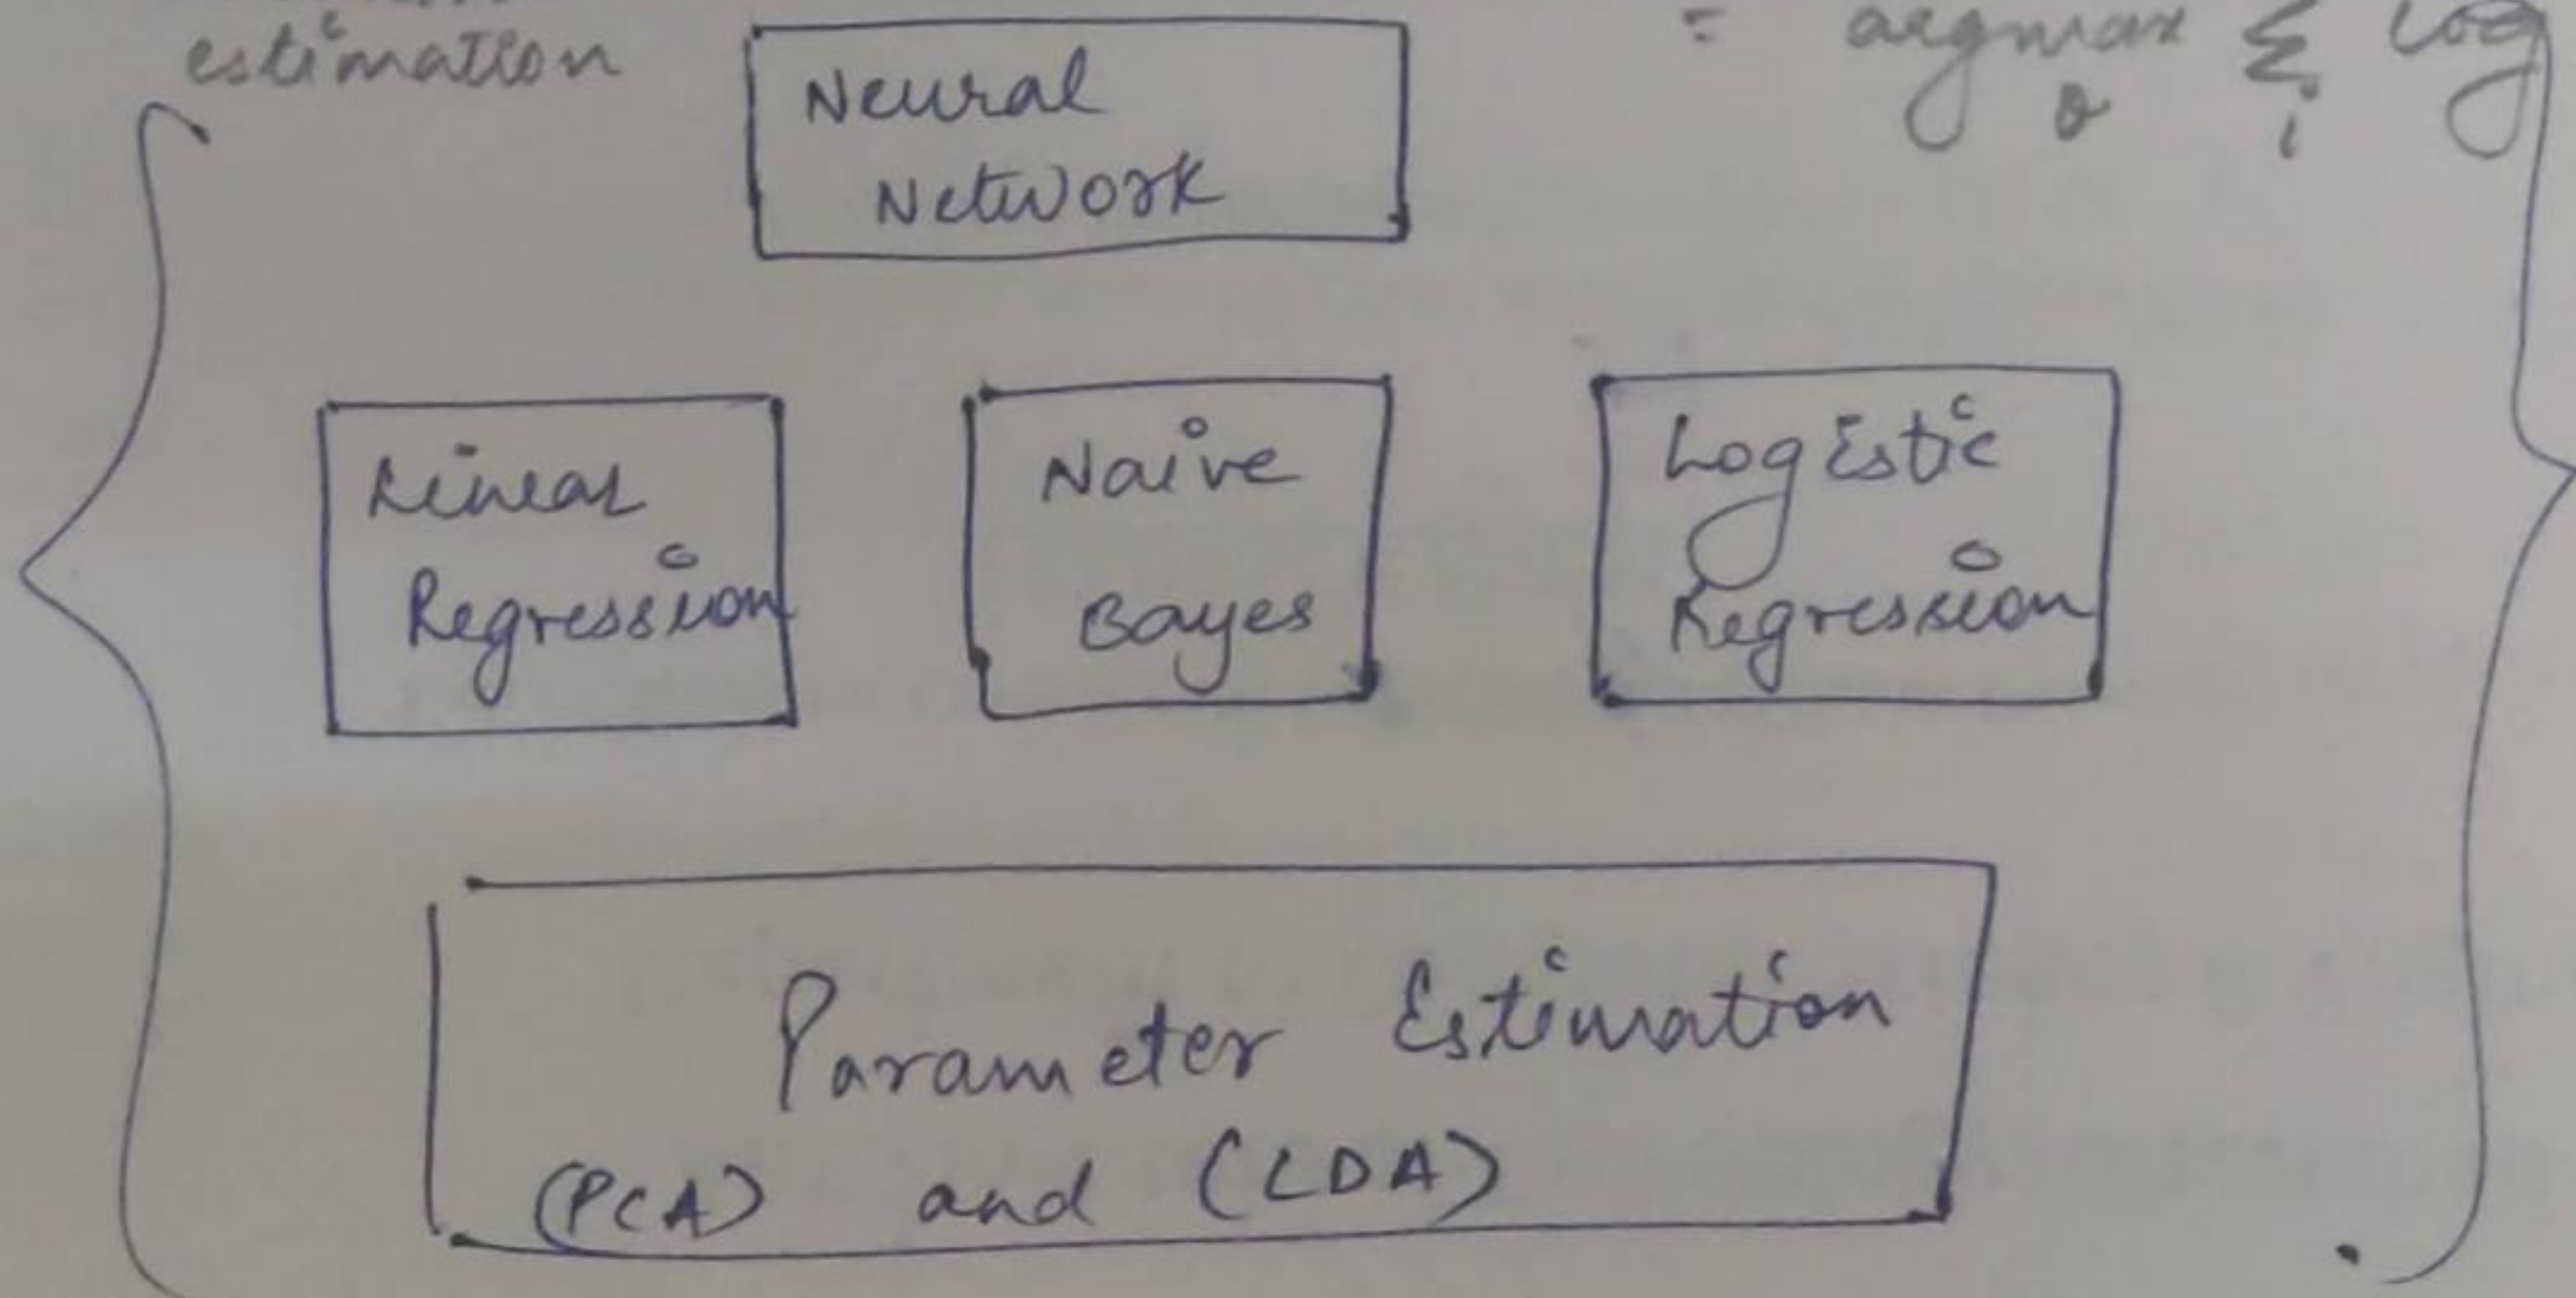 estimation
= argmax Σ log
θ i
Neural
Network
Linear
Regression
Naive
Bayes
Logistic
Regression
Parameter Estimation
(PCA) and (LDA)